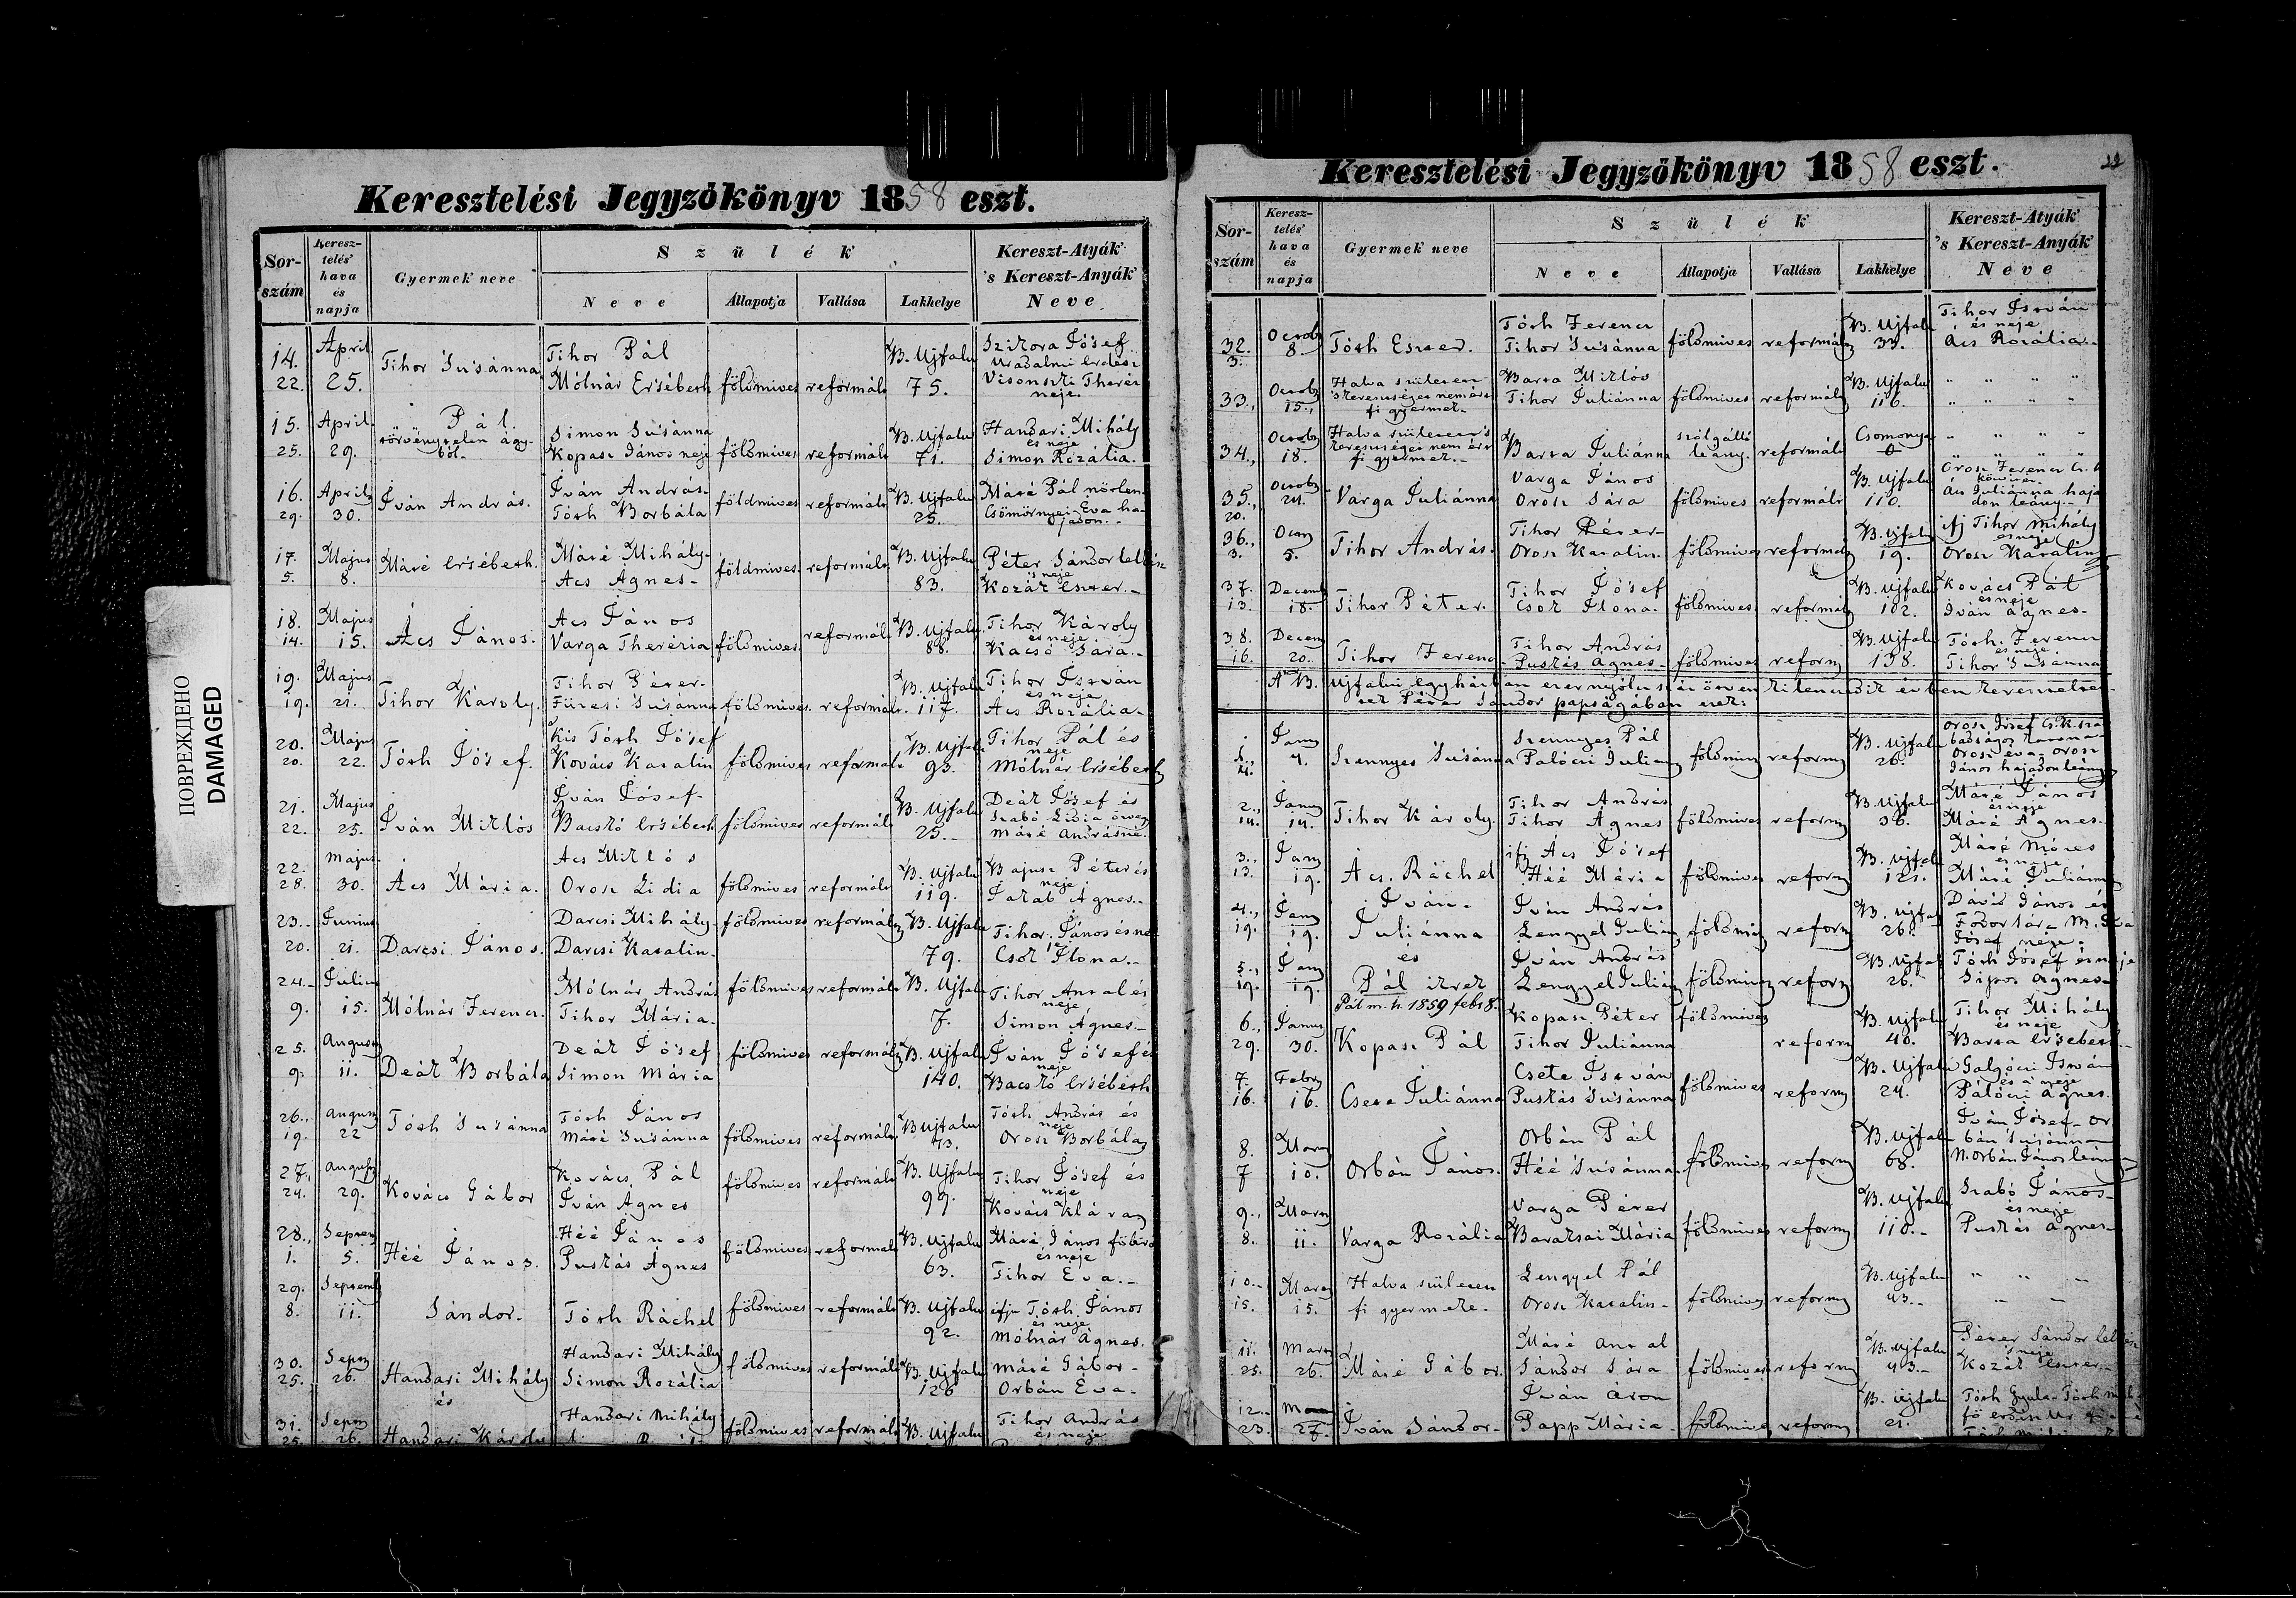 ПОВРЕЖДЕНО
DAMAGED
Keresztelési Jegyzőkönyv 1858 eszt.
Sor-szám
Keresz-telés' hava és napja
Gyermek neve
Szülék
Neve
Állapotja
Vallása
Lakhelye
Kereszt-Atyák 's Kereszt-Anyák' Neve
14. 22. April 25. Tihor Susánna Tihor Pál Mólnár Ersébeth földmives reformált B. Ujfalu 75. Szikora Jósef Uradalmi Erdész neje.
15. 25. April. 29. Pál. törvénytelen ágyból. Simon Susánna Kopasz János neje földmives reformált B. Ujfalu 71. Handari Mihály és neje Simon Rozália.
16. 29. April 30. Iván András. Iván András. Tóth Borbála földmives reformált B. Ujfalu 25. Máté Pál nőtlen. Csömörnyei Eva hajadon.
17. 5. Majus 8. Máté Ersébeth. Máté Mihály. Acs Agnes földmives. reformált B. Ujfalu 83. Péter Sándor lelkész 's neje Kozák Eszter.
18. 14. Majus 15. Ács János. Acs János Varga Therézia földmives. reformált B. Ujfalu. 88. Tihor Károly és neje Kacsó Sára.
19. 19. Majus 21. Tihor Károly. Tihor Péter. Füzesi Susánna földmives. reformált. B. Ujfalu 117. Tihor István és neje Ács Rozália.
20. 20. Majus 22. Tóth Jósef. Kis Tóth Jósef Kovács Katalin földmives reformált B. Ujfalu 93. Tihor Pál és neje Mólnár Ersébeth
21. 22. Majus 25. Iván Miklós Iván Jósef. Bacskó Ersébeth földmives reformált B. Ujfalu 25. Deák Jósef és Szabó Lidia özvegy Máté Andrásné.
22. 28. Majus. 30. Acs Mária. Acs Miklós Orosz Lidia földmives reformált B. Ujfalu 119. Bajusz Péter és neje Jakab Agnes.
23. 20. Junius 21. Darcsi János. Darcsi Mihály Darcsi Katalin. földmives reformált B. Ujfalu 79. Tihor János és neje Csok Ilona.
24. 9. Julius 15. Mólnár Ferencz. Mólnár András Tihor Mária. földmives reformált B. Ujfalu 7. Tihor Antal és neje Simon Agnes.
25. 9. August 11. Deák Borbála Deák Jósef Simon Mária földmives reformált B. Ujfalu 140. Iván Jósef és neje Bacskó Ersébeth
26. 19. August 22 Tóth Susánna Tóth János Máté Susánna földmives reformált B Ujfalu 73. Tóth András és neje Orosz Borbála
27. 24. August 29. Kovács Gábor Kovács Pál Iván Agnes földmives reformált B. Ujfalu 99. Tihor Jósef és neje Kovács Klára
28. 1. Septem 5. Héé János. Héé János Puskás Agnes földmives reformált B. Ujfalu 63. Máté János főbiró és neje Tihor Éva.
29. 8. Septemb 11. Sándor. Tóth Ráchel földmives reformált B. Ujfalu 92. ifju Tóth János és neje Mólnár Agnes.
30. 25. Sept 26. Handari Mihály és Handari Mihály Simon Rozália földmives reformált B. Ujfalu 126 Máté Gábor Orbán Éva
31. 25. Sept 26. Handari Károly Handari Mihály földmives reformált B. Ujfalu Tihor András és neje
Keresztelési Jegyzőkönyv 1858 eszt.
22
Sor-szám
Keresz-telés' hava és napja
Gyermek neve
Szülék
Neve
Állapotja
Vallása
Lakhelye
Kereszt-Atyák 's Kereszt-Anyák' Neve
32. 3. Octob 8. Tóth Eszter. Tóth Ferencz Tihor Susánna földmives reformált B. Ujfalu 33. Tihor István és neje Acs Rozália.
33. Octob 15. Halva született fi gyermek. Barta Miklós Tihor Juliánna földmives reformált B. Ujfalu 116. " " " "
34. Octob 18. Halva született 's keresztséget nem ért fi gyermek. Barta Juliánna szolgálló leány. reformált Csomonya 0 " " " "
35. 20. Octob 24. Varga Juliánna Varga János Orosz Sára földmives reformált B. Ujfalu 110. Orosz Ferencz Ács Juliánna hajadon leány.
36. 3. 5. Tihor András. Tihor Péter Orosz Katalin. földmives reformált B. Ujfalu 19. ifj Tihor Mihály és neje Orosz Katalin
37. 13. Decemb 18. Tihor Péter. Tihor Jósef Csok Ilona. földmives. reformált B. Ujfalu 102. Kovács Pál és neje Iván Agnes
38. 16. Decem 20. Tihor Ferencz Tihor András Puskás Agnes földmives reform B. Ujfalu 138. Tóth Ferencz és neje Tihor Susánna
A B. Ujfalui egyházban ezernyólcszáz ötven kilenczdik évben kereszteltettek Péter Sándor papságában ezek:
1. 4. Janu 4. Szennyes Susánna Szennyes Pál Palóczi Julianna földmives reform B. Ujfalu 26. Orosz Eva Orosz János hajadon leánya
2. 14. Janu 14. Tihor Károly. Tihor András Tihor Agnes földmives reform B. Ujfalu 36. Máté János és neje Máté Agnes.
3. 13. Janu 19. Acs. Ráchel ifj Acs Jósef Héé Mária földmives reform B. Ujfalu 121. Máté Móses és neje Máté Juliánna
4. 19. Janu 19. Iván. Juliánna és Iván András Lengyel Julián földmives reform B. Ujfalu 26. Dávid János és Fodor Sára
5. 19. Janu 19. Pál ikrek Pál m. h. 1859 febr 8. Iván András Lengyel Julián földmives reform B. Ujfalu 26. Tóth Jósef és neje Sipos Agnes
6. 29. Janu 30. Kopasz Pál Kopasz Péter Tihor Juliánna földmives reform B. Ujfalu 40. Tihor Mihály és neje Barta Ersébeth
7. 16. Febr 16. Csete Juliánna Csete István Puskás Susánna földmives reform B. Ujfalu 24. Galgóczi István és a neje Palóczi Agnes.
8. 7 Mart 10. Orbán János. Orbán Pál Héé Susánna földmives reform B. Ujfalu 68. Iván Jósef Orbán Susánna N. Orbán János leánya
9. 8. Mart 11. Varga Rozália Varga Péter Baratsai Mária földmives reform B. Ujfalu 110. Szabó János és neje Puskás Agnes
10. 15. Mart 15. Halva született fi gyermek. Lengyel Pál Orosz Katalin földmives reform B. Ujfalu 43.
11. 25. Mart 26. Máté Gábor. Máté Antal Sándor Sára földmives reform B. Ujfalu 43. Péter Sándor lelkész 's neje Kozák Eszter
12. 23. 27. Iván Sándor Iván Áron Papp Mária földmives reform B. Ujfalu 21. Tóth Gyula